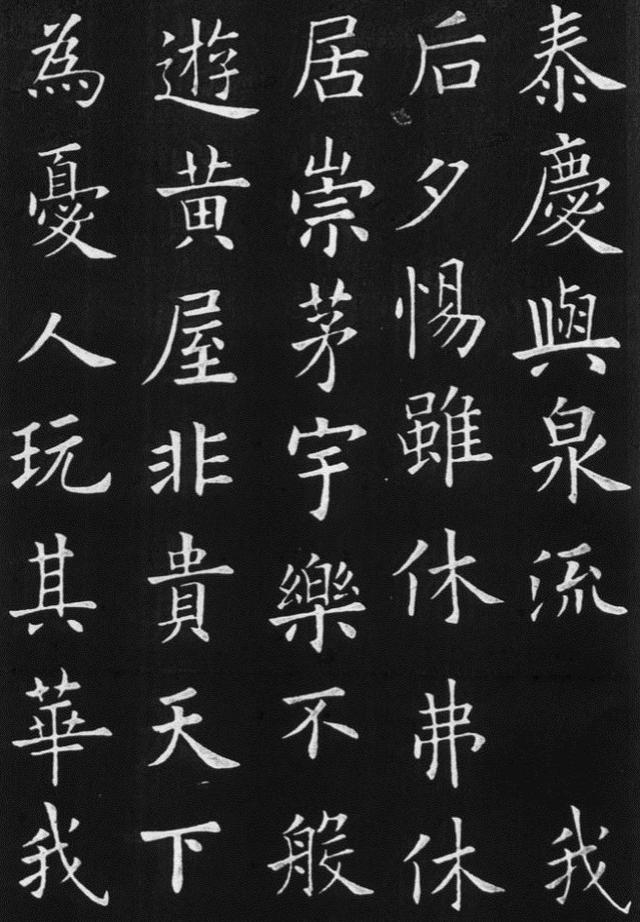 泰慶與泉流我
后夕惕雖休弗休
居崇茅宇樂不般
遊黄屋非貴天下
為憂人玩其華我